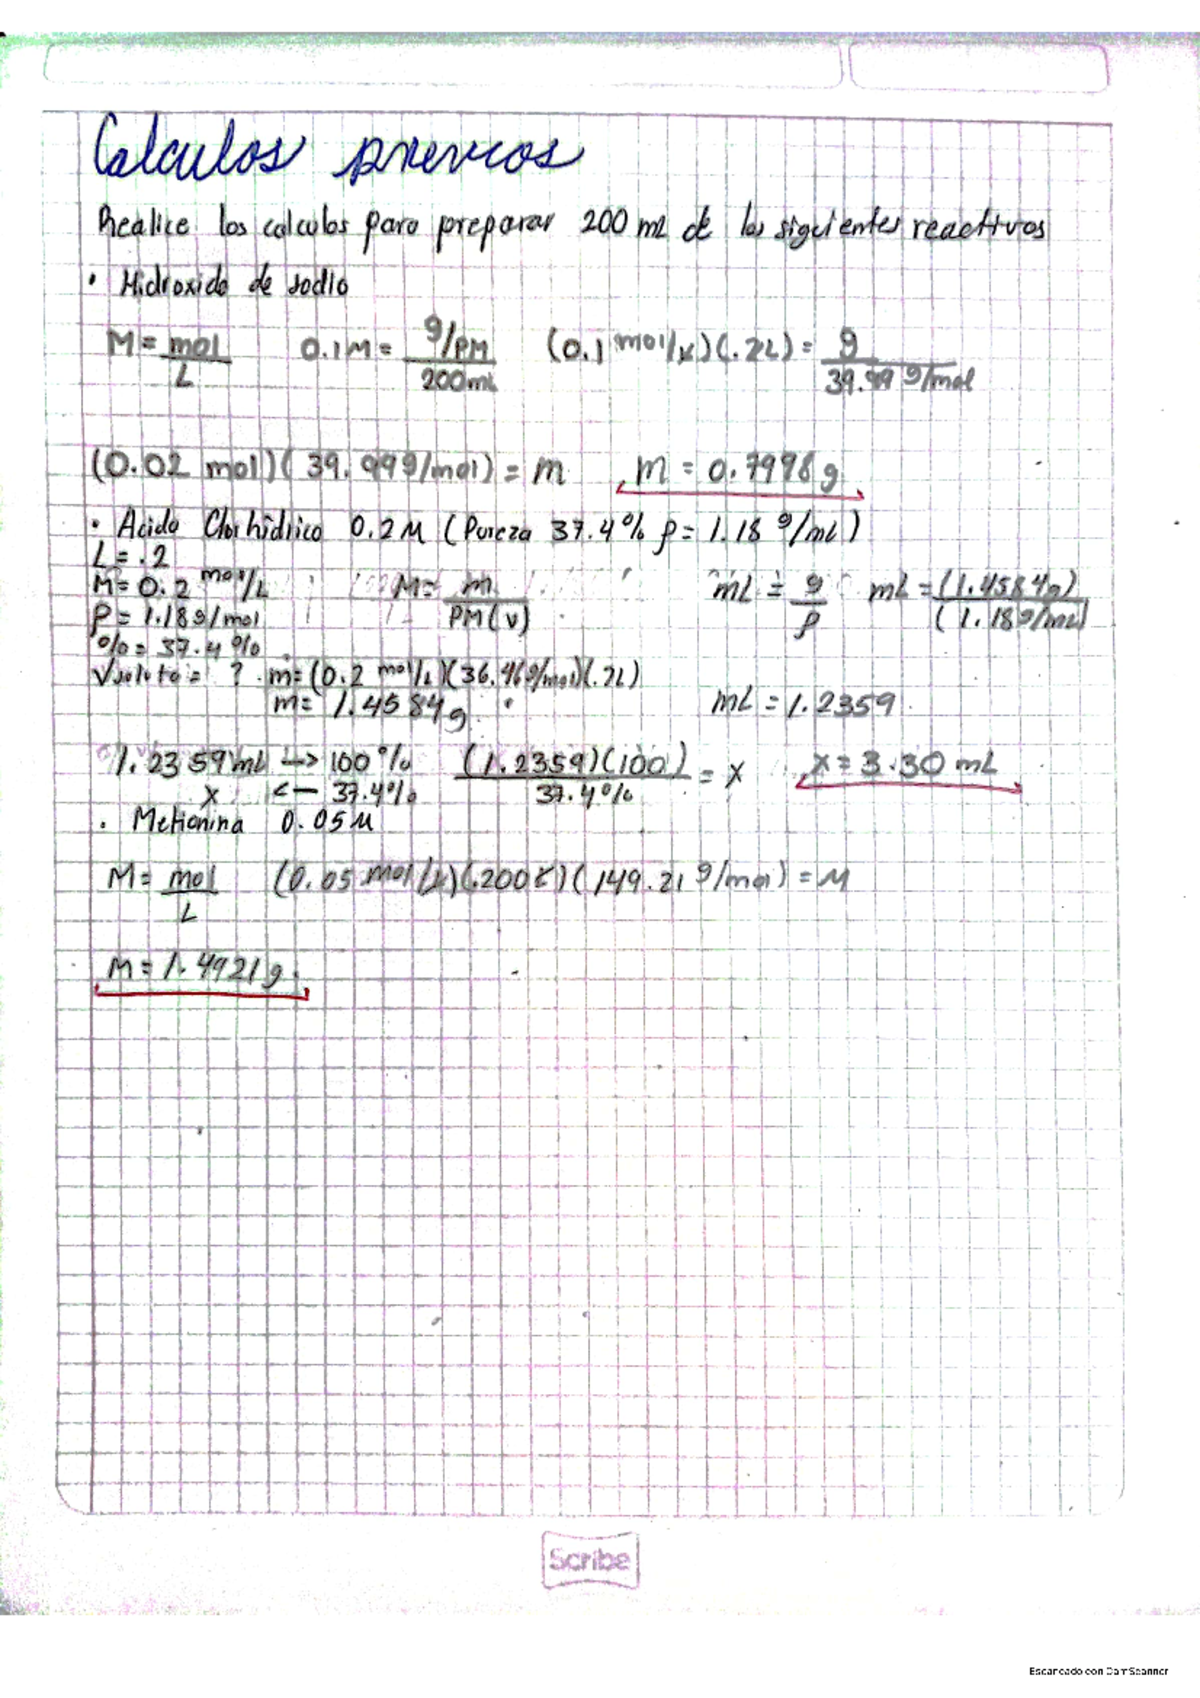 Calculos previos
Realice los calculos para preparar 200 mL de los siguientes reactivos
• Hidroxido de sodio
M = mol/L   0.1M = g/PM / 200mL   (0.1 mol/L)(.2L) = g / 39.99 g/mol
(0.02 mol)(39.99g/mol) = m   m = 0.7998g
• Acido Clorhidrico 0.2M (Pureza 37.4% ρ = 1.18 g/mL)
L = .2
M = 0.2 mol/L   M = m / PM(v)   mL = g/ρ   mL = (1.4584g) / (1.18g/mL)
ρ = 1.18g/mol
% = 37.4%
Vsoluto = ?   m = (0.2 mol/L)(36.46g/mol)(.2L)
m = 1.4584g   mL = 1.2359
1.2359 mL → 100%   (1.2359)(100) / 37.4% = x   x = 3.30 mL
x ← 37.4%
• Metionina 0.05M
M = mol/L   (0.05 mol/L)(.200L)(149.21 g/mol) = M
M = 1.4921g.
Scribe
Escaneado con CamScanner